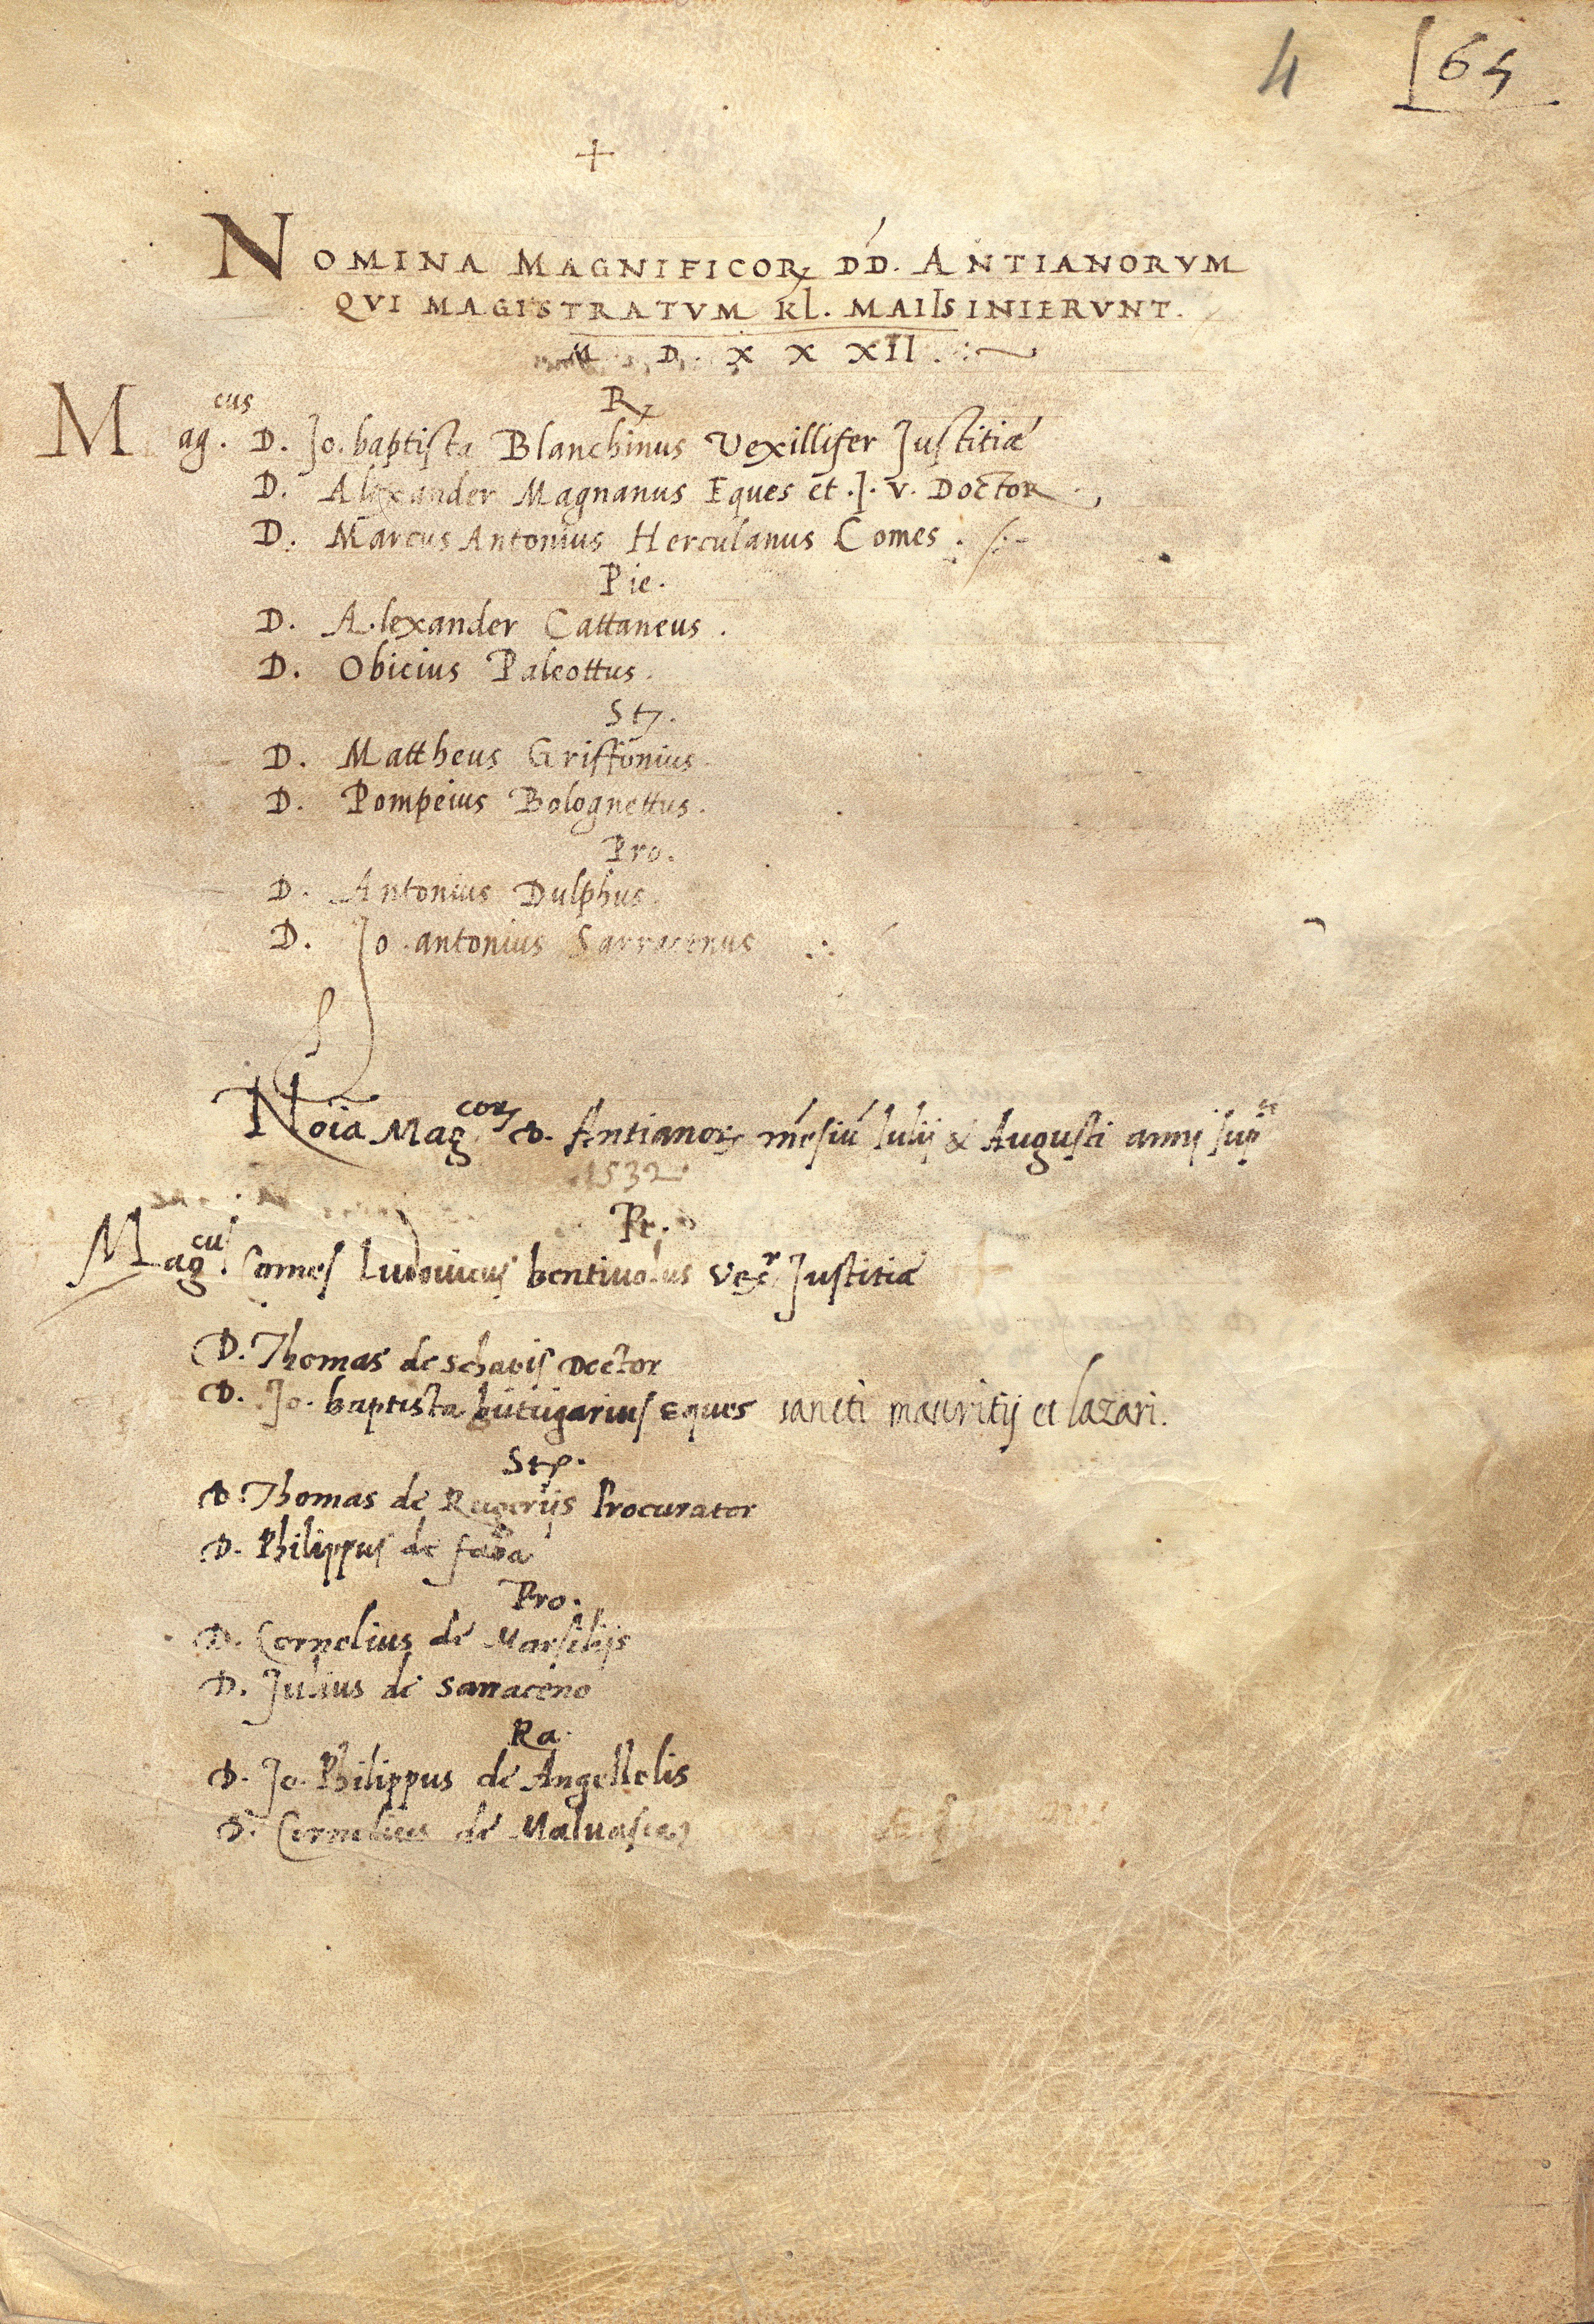 4 164
+
NOMINA MAGNIFICOR DD. ANTIANORVM
QVI MAGISTRATVM KL. MAIIS INIERVNT.
M D X X XII .
R
Mag.cus D. Jo. baptista Blanchinus Vexillifer Justitiæ
D. Alexander Magnanus Eques et .J. V. Doctor.
D. Marcus Antonius Herculanus Comes.
Pie.
D. Alexander Cattaneus.
D. Obicius Paleottus.
St.
D. Mattheus Griffonius.
D. Pompeius Bolognettus.
Pro.
D. Antonius Dulphus.
D. Jo. antonius Sarracenus
Noia Mag.cor D. Antianor mesiu Iulij & Augusti anni sup.
1532
Pe.
Mag.cus Comes Ludovicus bentivolus Vexr Justitiæ
D. Thomas de schapis Doctor
D. Jo. baptista butrigarius Eques sancti mauritij et lazari.
St.
D. Thomas de Rugerijs Procurator
D. Philippus de faba
Pro.
D. Cornelius de Marsilijs
D. Julius de Sarraceno
Ra.
D. Jo. Philippus de Angellelis
D. Cornelius de Malvasia